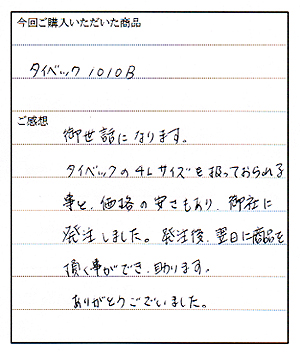 今回ご購入いただいた商品
タイベック 1010B
ご感想
御世話になります。
タイベックの4Lサイズを扱っておられる
事と、価格の安さもあり、御社に
発注しました。発注後、翌日に商品を
頂く事ができ、助ります。
ありがとうございました。